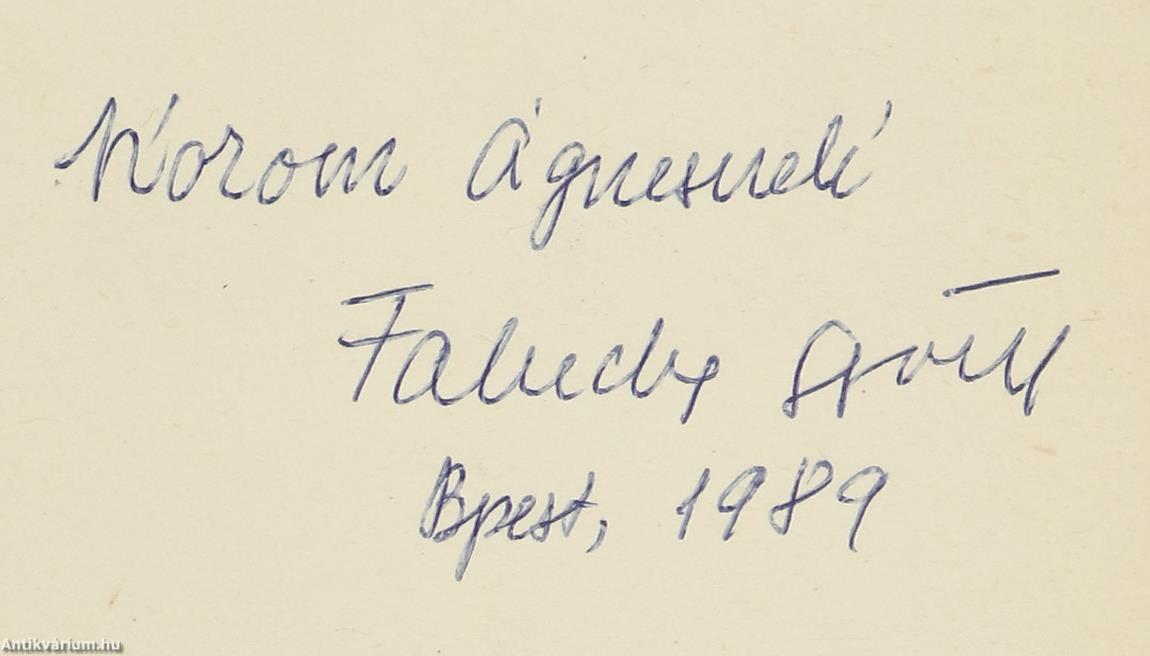 Korom Ágnesnek
Faludy György
Bpest, 1989
Antikvárium.hu